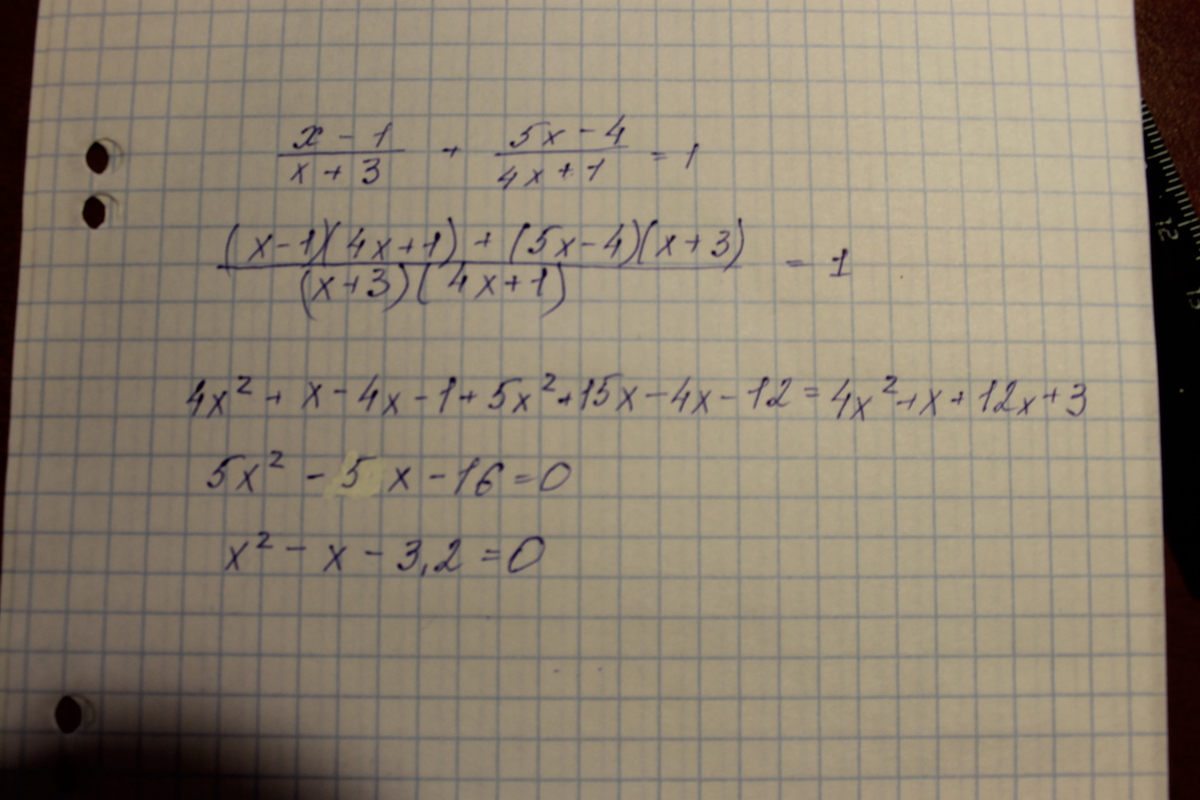 x - 1 / x + 3 + 5x - 4 / 4x + 1 = 1
(x - 1)(4x + 1) + (5x - 4)(x + 3) / (x + 3)(4x + 1) = 1
4x² + x - 4x - 1 + 5x² + 15x - 4x - 12 = 4x² + x + 12x + 3
5x² - 5x - 16 = 0
x² - x - 3,2 = 0